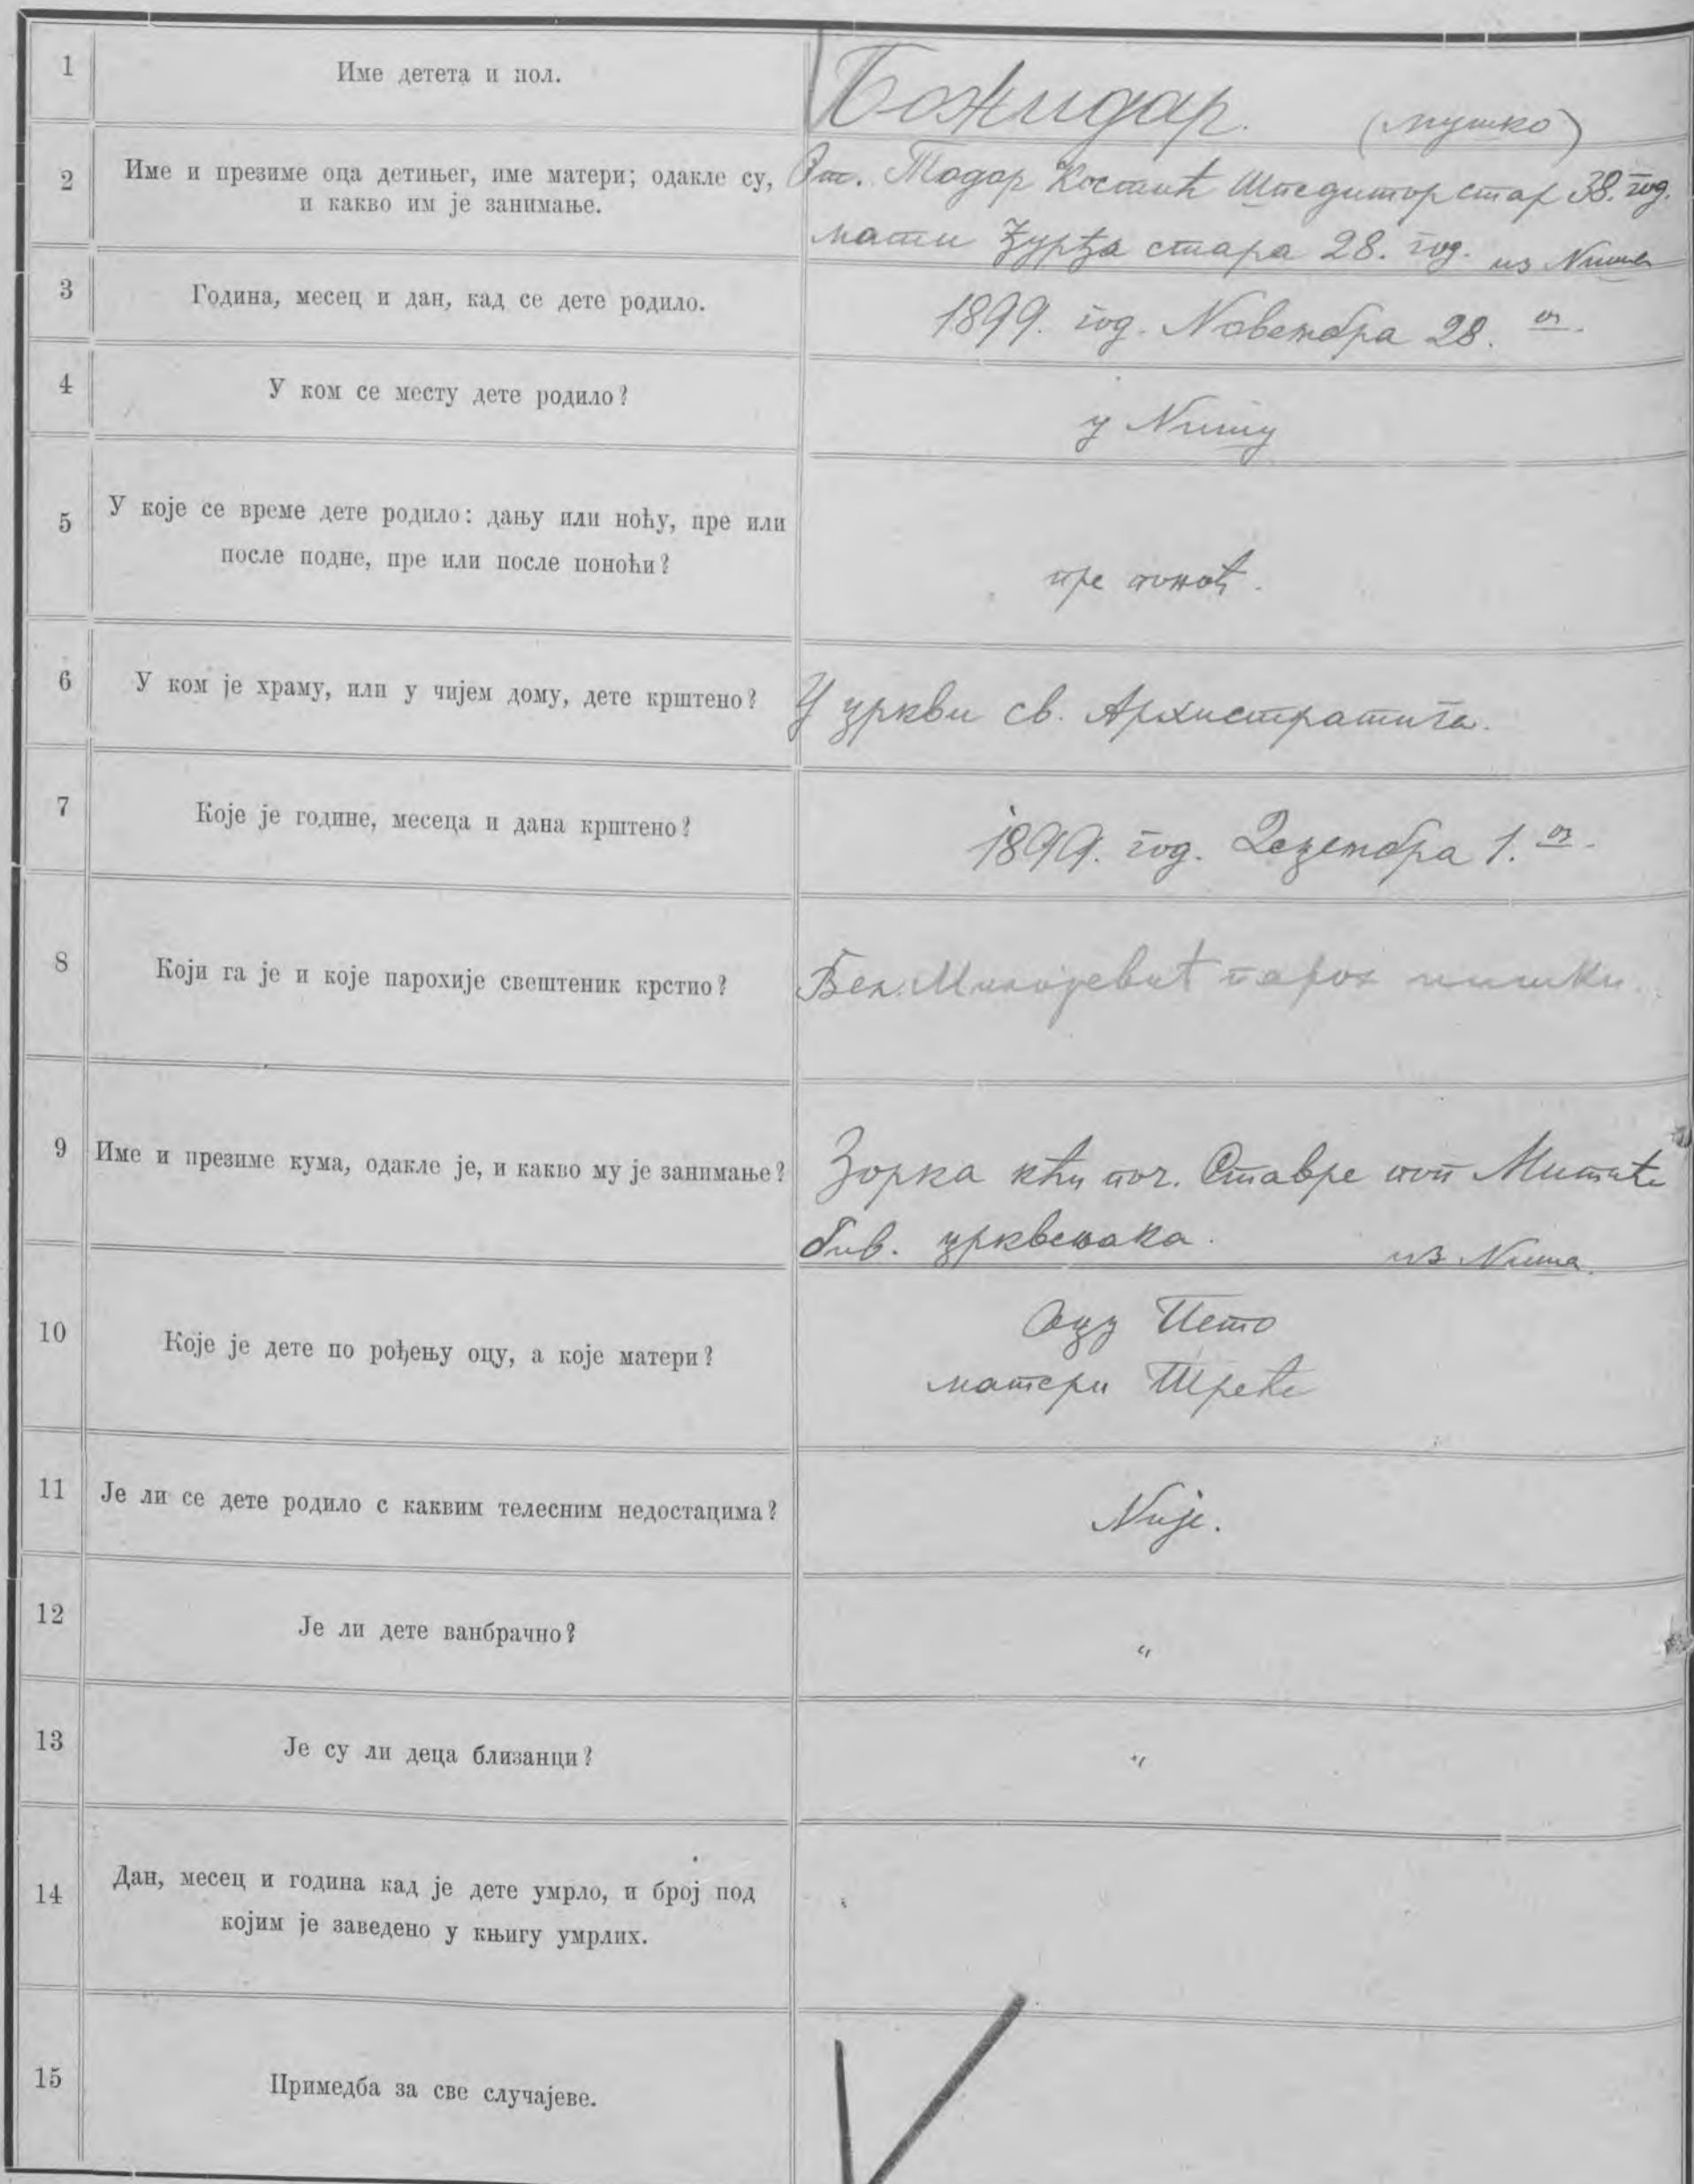 1 Име детета и пол. Божидар. (мушко)
2 Име и презиме оца детињег, име матери; одакле су,
и какво им је занимање.
От. Тодор Костић Шпедитор стар 38. год.
мати Ђурђа стара 28. год. из Ниша
3 Година, месец и дан, кад се дете родило. 1899. год. Новембра 28. ог.
4 У ком се месту дете родило? у Нишу
5 У које се време дете родило: дању или ноћу, пре или
после подне, пре или после поноћи?
пре поноћ.
6 У ком је храму, или у чијем дому, дете крштено? У цркви св. Архистратига.
7 Које је године, месеца и дана крштено? 1899. год. Децембра 1. ог.
8 Који га је и које парохије свештеник крстио? Бел. Миловевић парох нишки.
9 Име и презиме кума, одакле је, и какво му је занимање? Зорка кћи поч. Ставре поп Митића
бив. црквењака. из Ниша.
10 Које је дете по рођењу оцу, а које матери?
Оцу Пето
матери Треће
11 Је ли се дете родило с каквим телесним недостацима? Није.
12 Је ли дете ванбрачно? "
13 Је су ли деца близанци? "
14 Дан, месец и година кад је дете умрло, и број под
којим је заведено у књигу умрлих.
15 Примедба за све случајеве.